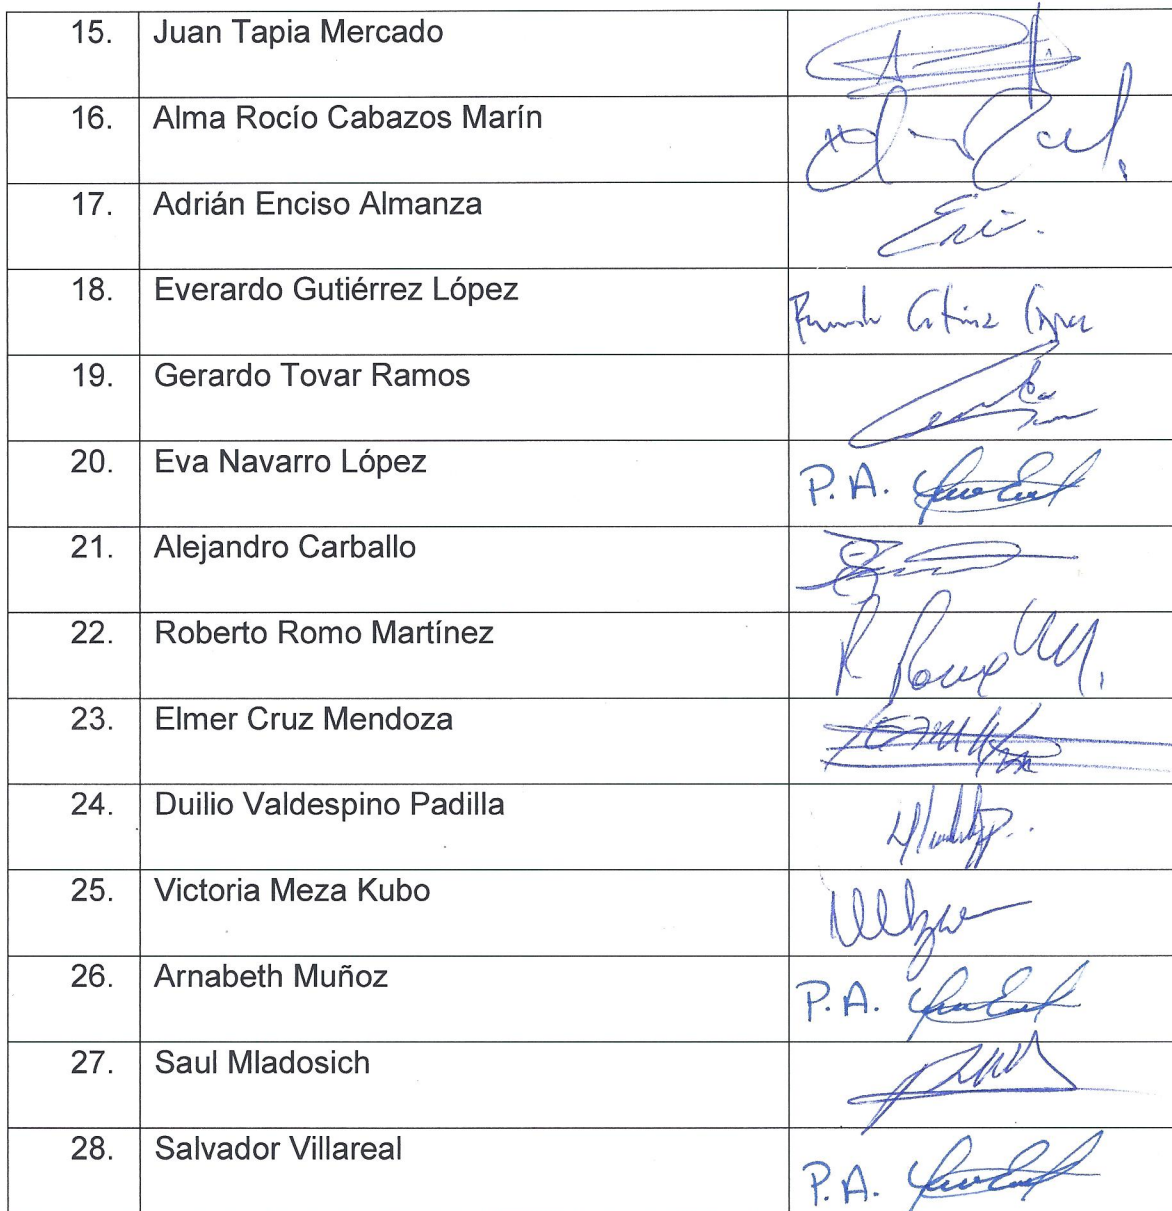 15. Juan Tapia Mercado
16. Alma Rocío Cabazos Marín
17. Adrián Enciso Almanza
18. Everardo Gutiérrez López
19. Gerardo Tovar Ramos
20. Eva Navarro López P.A.
21. Alejandro Carballo
22. Roberto Romo Martínez
23. Elmer Cruz Mendoza
24. Duilio Valdespino Padilla
25. Victoria Meza Kubo
26. Arnabeth Muñoz P.A.
27. Saul Mladosich
28. Salvador Villareal P.A.